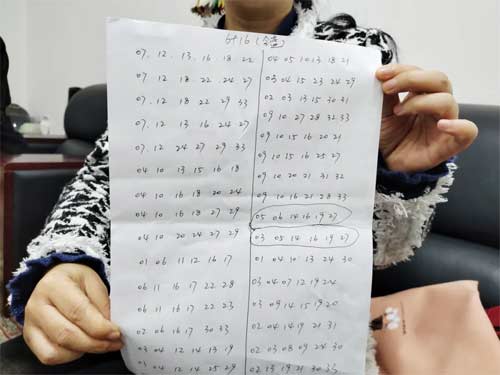 6+16 (全蓝)
07. 12. 13. 16 18 22
07. 12 18 22 24 27
07. 12 18 22 29 33
07. 12 13 16 24 27
07. 12 24 27 29 33
04 10 13 15 16 18
04 10 16 18 20 24
04 10 16 18 27 29
04 10 20 24 27 29
01 06 11 12 16 17
06 11 16 17 22 28
06 11 16 17 22 23
02 06 16 17 30 33
03 04 12 14 13 19
03 04 12 14 25 29
04 05 10 13 18 21
03 04 15 23 24 29
02 03 13 15 30 31
09 10 27 28 32 33
09 10 15 16 20 21
09 10 15 16 25 27
09 10 20 21 31 32
09 10 16 21 28 33
05 06 14 16 19 27
03 05 14 16 19 27
01 04 10 13 24 30
03 04 07 12 19 24
03 09 14 15 19 20
02 04 14 19 21 31
02 03 08 09 24 30
02 13 19 21 30 33